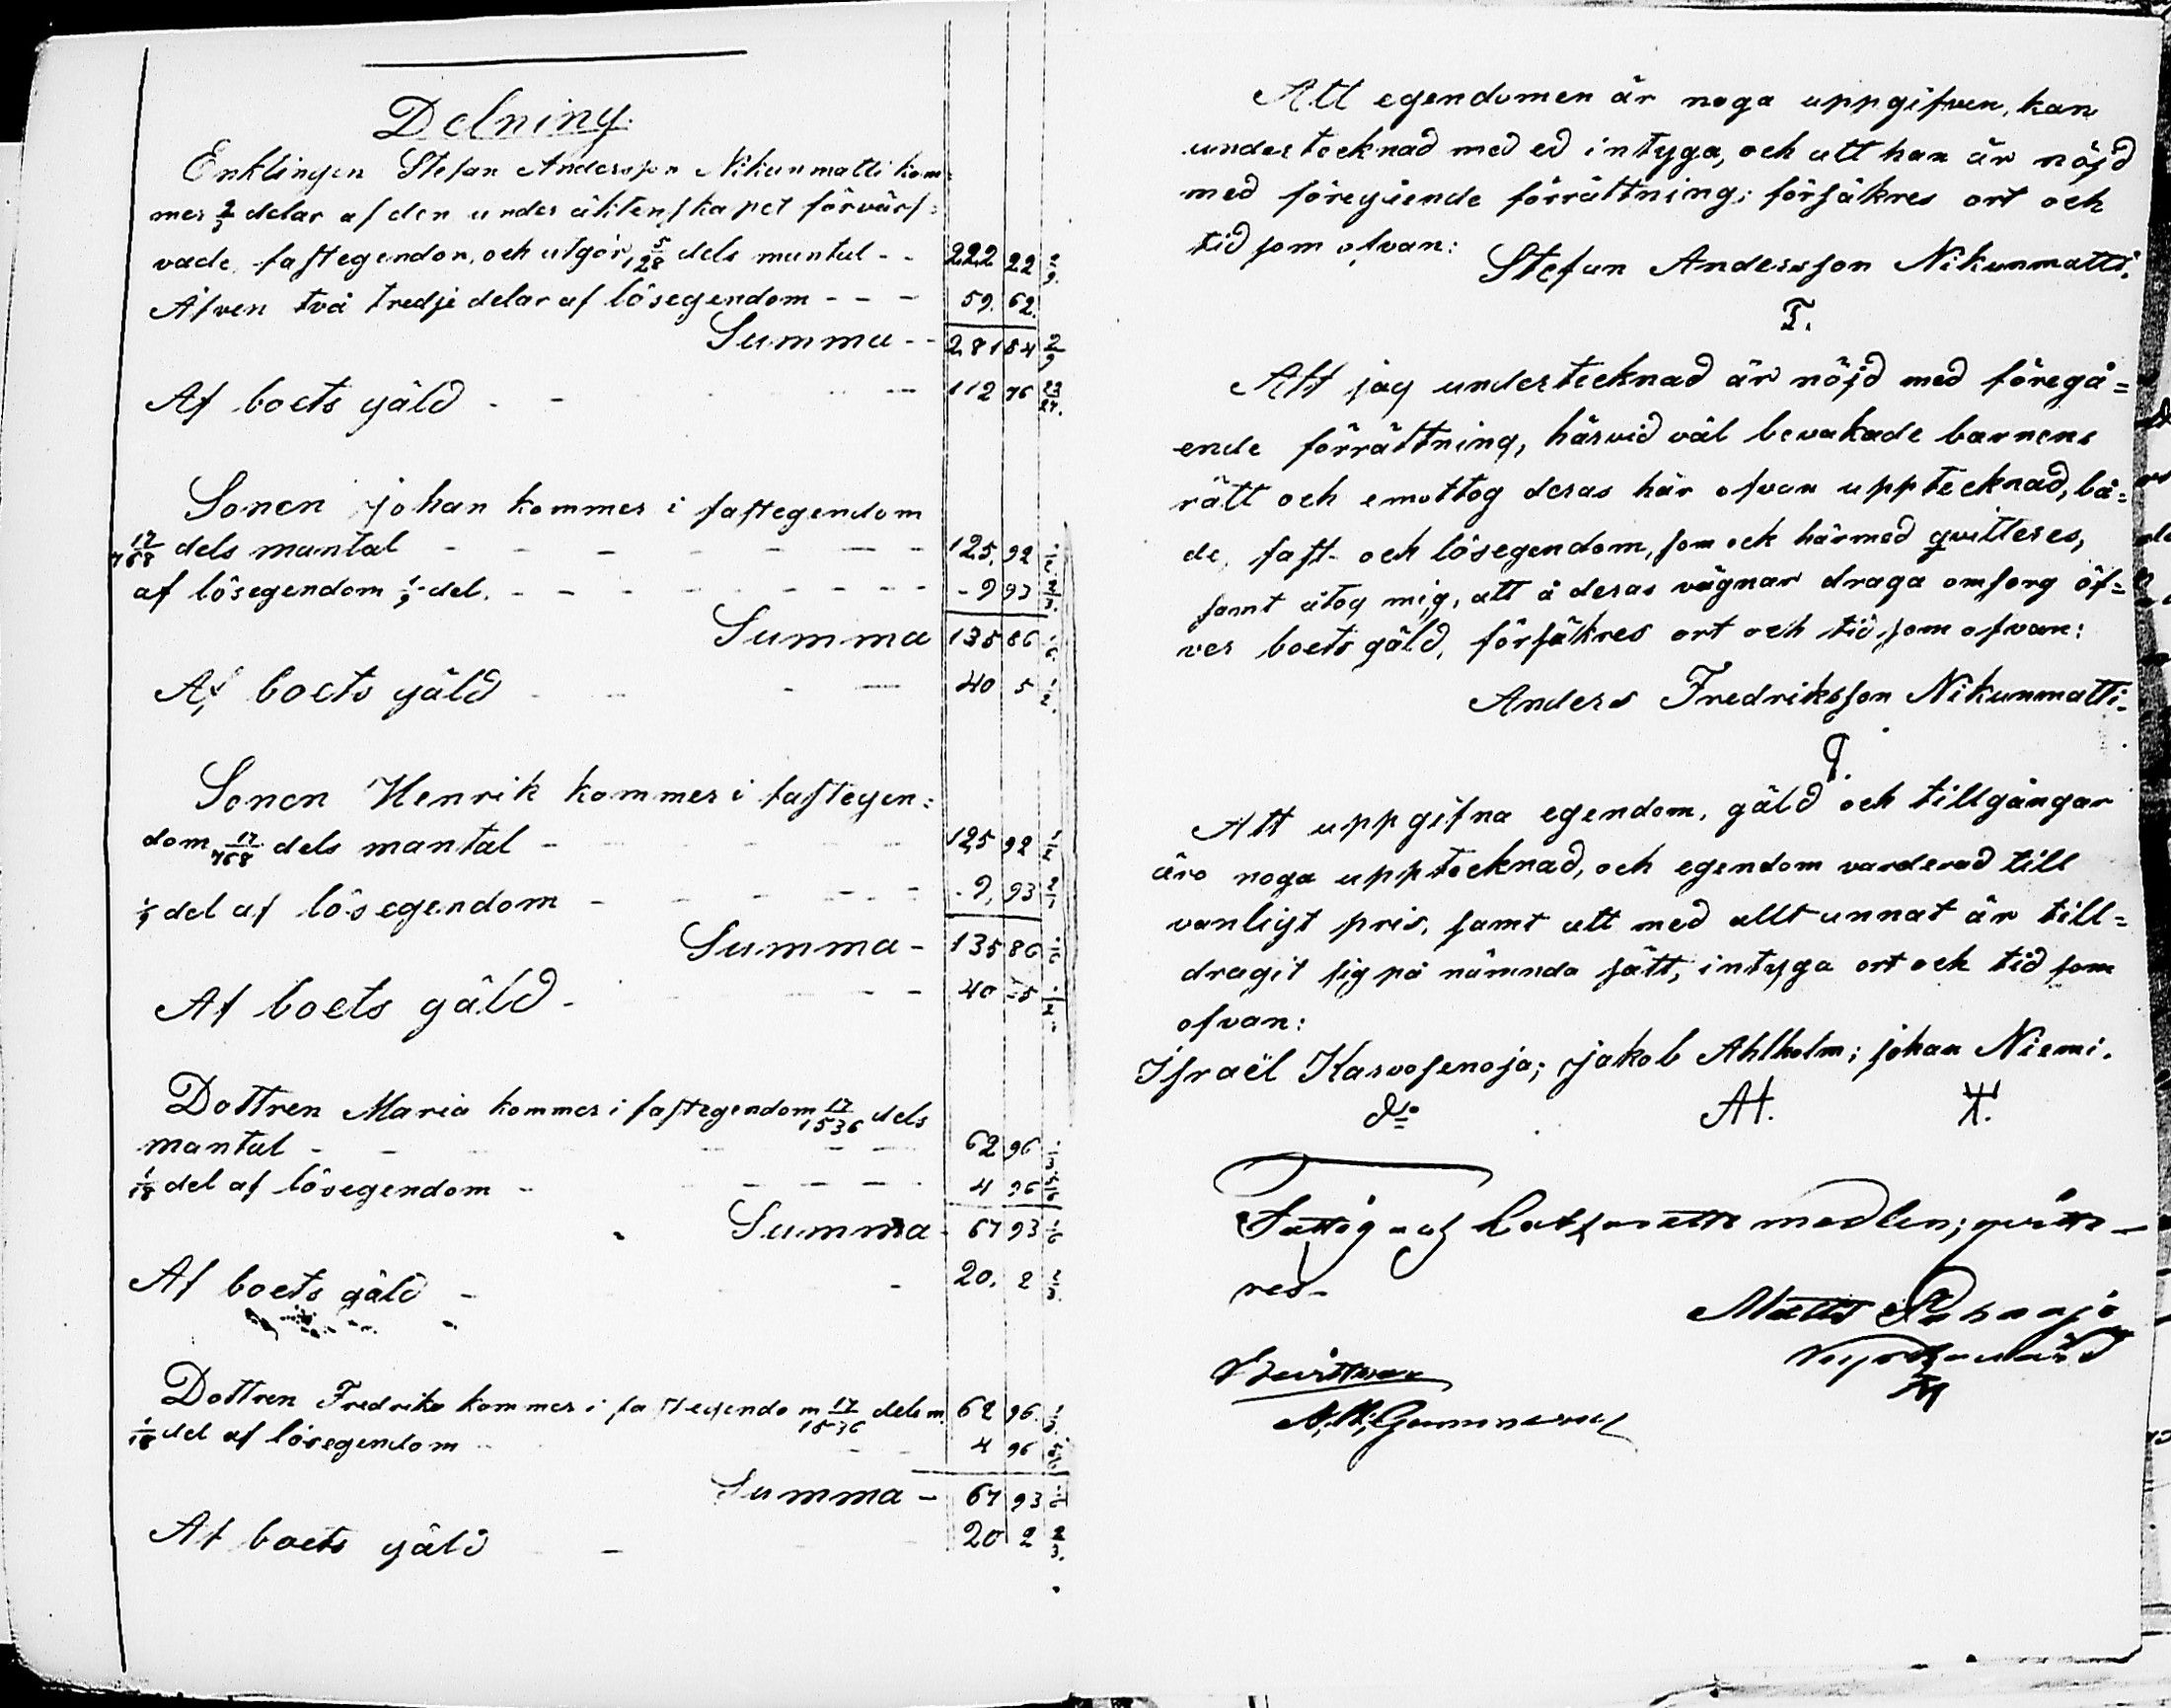 Delning.
Enklingen Stefan Andersson Nikunmatti kom=
mer 2/3 delar af den under äktenskapet förvärf=
vade fastegendom, och utgör 5/128 dels mantal - - 222 22 2/9.
Äfven två tredje delar af lösegendom - - - 59. 62.
Summa - - 281 84 2/9
Af boets gäld - - - 112 76 23/24.
Sonen Johan kommer i fastegendom
17/768 dels mantal - - - - - - - 125. 92 1/2
af lösegendom 1/9 del. - - - - - - - - 9 93 2/3.
Summa 135 86 1/6.
Af boets gäld - - - - 40 5 1/2.
Sonen Henrik kommer i fastegen=
dom 17/768 dels mantal - - - - 125 92 1/2
1/9 del af lösegendom - - - - - - 9, 93 2/3
Summa - 135 86 1/6
Af boets gäld - - - 40 5 1/2.
Dottren Maria kommer i fastegendom 17/1536 dels
mantal - - - - - 62 96 1/3.
1/18 del af lösegendom - - - - - - 4 96 5/6
Summa - 67 93 1/6
Af boets gäld - - 20. 2 2/3.
Dottren Fredrika kommer i fastegendom 17/1536 dels m. 62 96. 1/3.
1/18 del af lösegendom - - 4 96 5/6
Summa - 67 93 1/6
Af boets gäld - 20 2 2/3.
Att egendomen är noga uppgifven, kan
undertecknad med ed intyga, och att han är nöjd
med föregående förrättning; försäkres ort och
tid som ofvan:
Stefan Andersson Nikunmatti.
Att jag undertecknad är nöjd med föregå=
ende förrättning, härvid väl bevakade barnens
rätt och emottog deras här ofvan upptecknad, bå=
de, fast- och lösegendom, som ock härmed qvitteres,
samt åtog mig, att å deras vägnar draga omsorg öf=
ver boets gäld, försäkres ort och tid som ofvan:
Anders Fredriksson Nikunmatti.
Att uppgifna egendom, gäld och tillgångar
äro noga upptecknad, och egendom varderad till
vanligt pris, samt att med allt annat är till=
dragit sig på nämnda sätt, intyga ort och tid som
ofvan:
Israël Karvosenoja; Jakob Ahlholm; Johan Niemi.
AH.
Fattig- och medlen; qvitte-
res-
Matts
Qvitteras